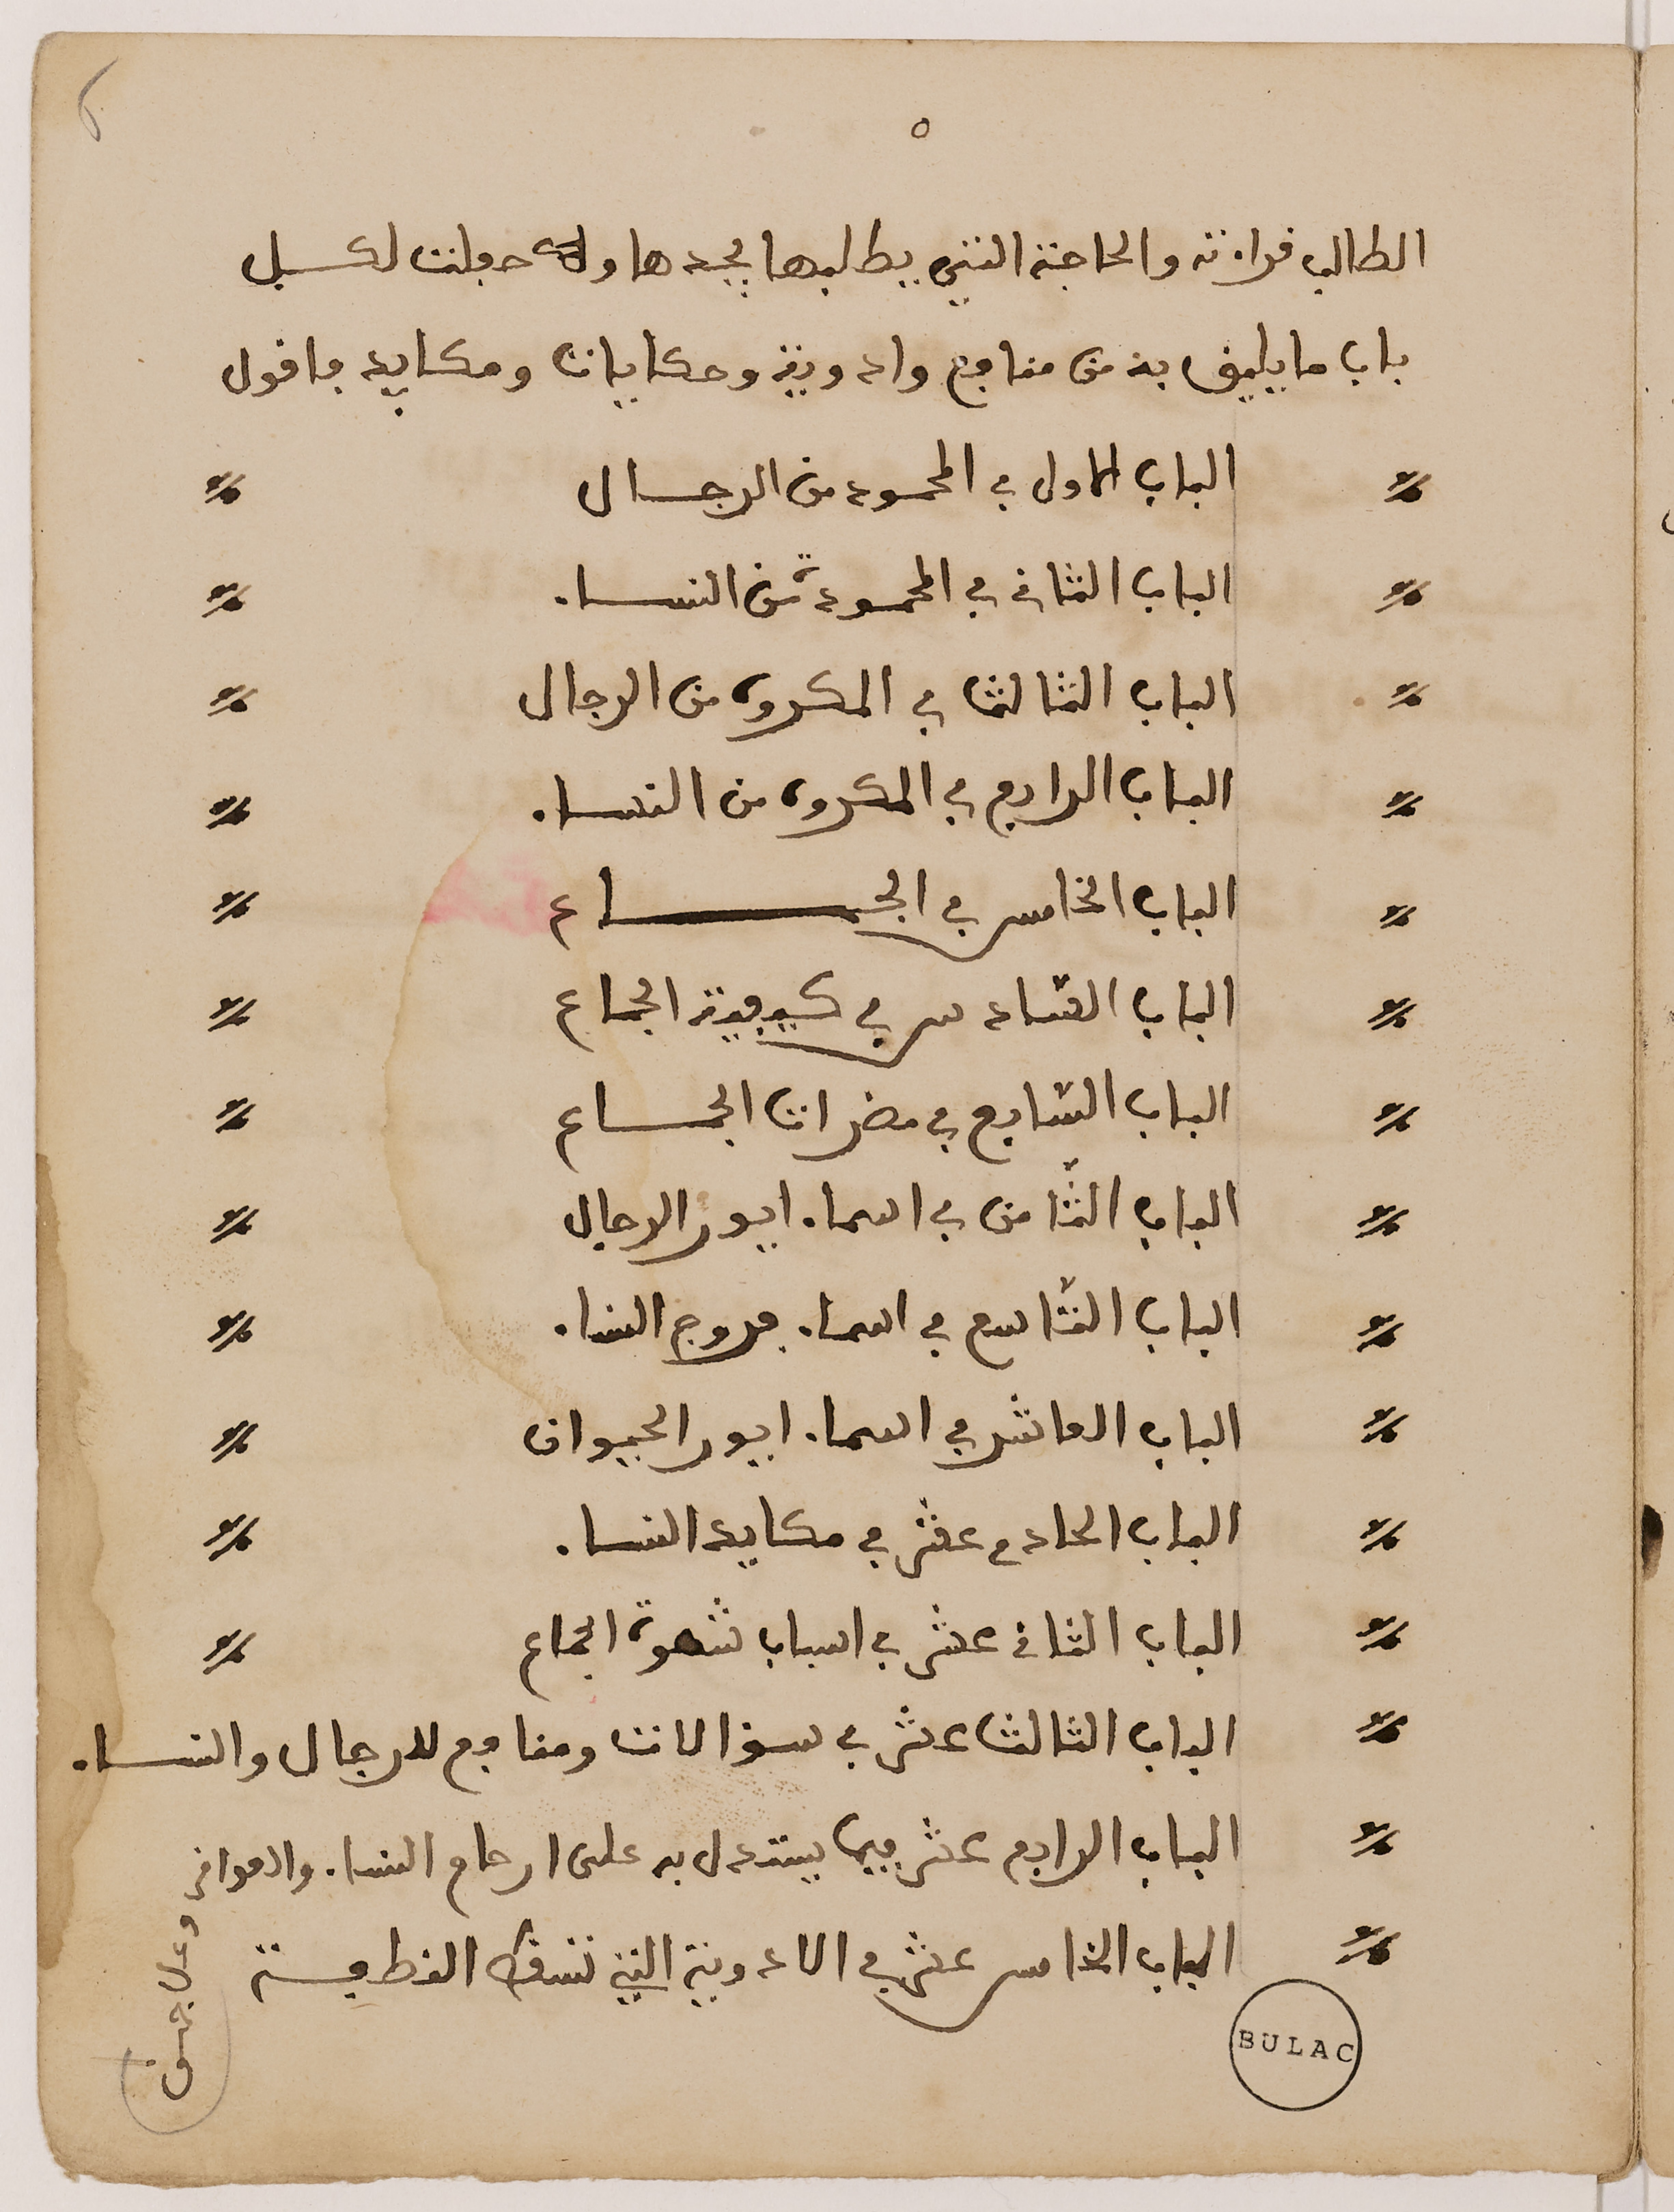 ٥
الطالب قراءته والحاجة التي يطلبها يجدها وله جعلت لكل
باب ما يليق به من منافع وادوية وحكايات ومكايد فاقول
الباب الاول في المحمود من الرجال
الباب الثاني في المحمودة من النساء
الباب الثالث في المكروه من الرجال
الباب الرابع في المكروه من النساء
الباب الخامس في الجماع
الباب السادس في كيفية الجماع
الباب السابع في مضرات الجماع
الباب الثامن في اسماء ايور الرجال
الباب التاسع في اسماء فروج النساء
الباب العاشر في اسماء ايور الحيوان
الباب الحادي عشر في مكايد النساء
الباب الثاني عشر في اسباب شهوة الجماع
الباب الثالث عشر في سؤالات ومنافع للرجال والنساء
الباب الرابع عشر فيما يستدل به على ارحام النساء والعواقر
الباب الخامس عشر في الادوية التي تسقط النطفة
BULAC